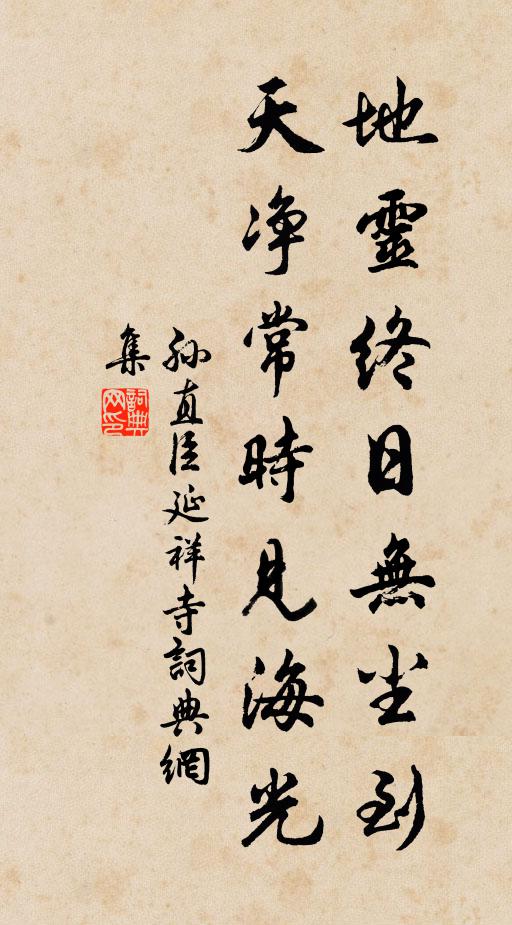 地靈終日無尘到
天净常時見海光
孙直臣延祥寺詞典網
集
詞典网印